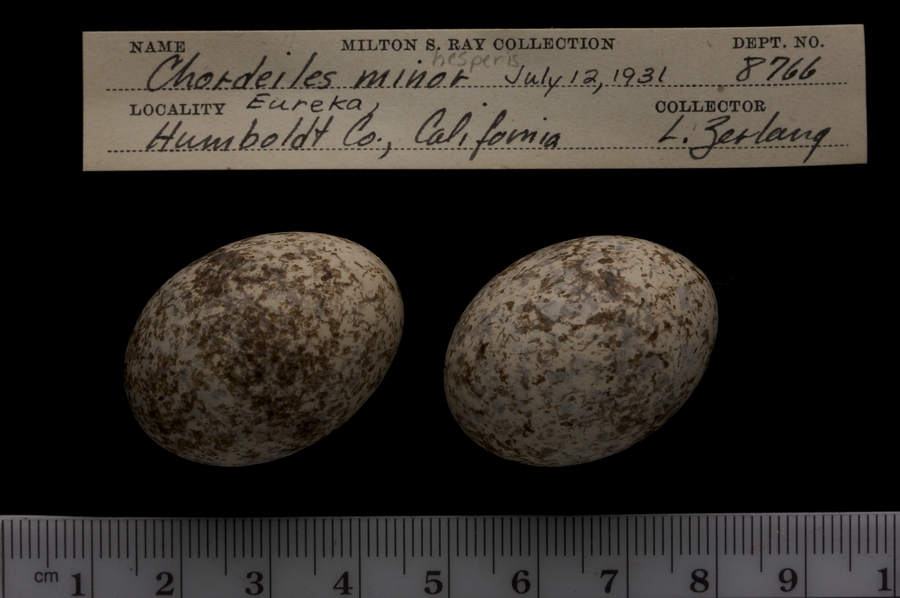 NAME MILTON S. RAY COLLECTION DEPT. NO.
hesperis
Chordeiles minor July 12, 1931 8766
LOCALITY Eureka, COLLECTOR
Humboldt Co., California L. Zerlang
cm 1 2 3 4 5 6 7 8 9 1